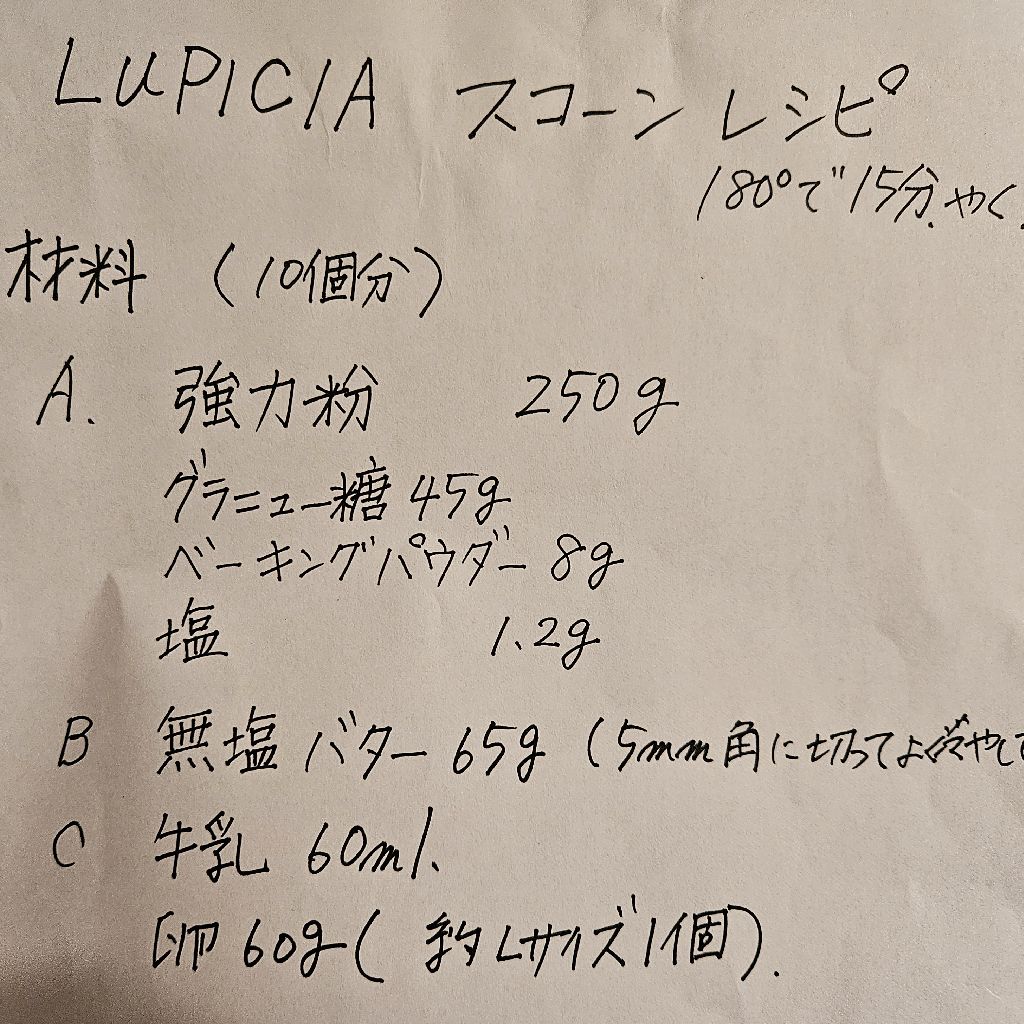 LUPICIA スコーン レシピ
180°で15分.やく.
材料 (10個分)
A. 強力粉 250g
グラニュー糖 45g
ベーキングパウダー 8g
塩 1.2g
B 無塩バター 65g (5mm角に切ってよく冷やして
C 牛乳 60ml.
卵 60g (約Lサイズ1個).